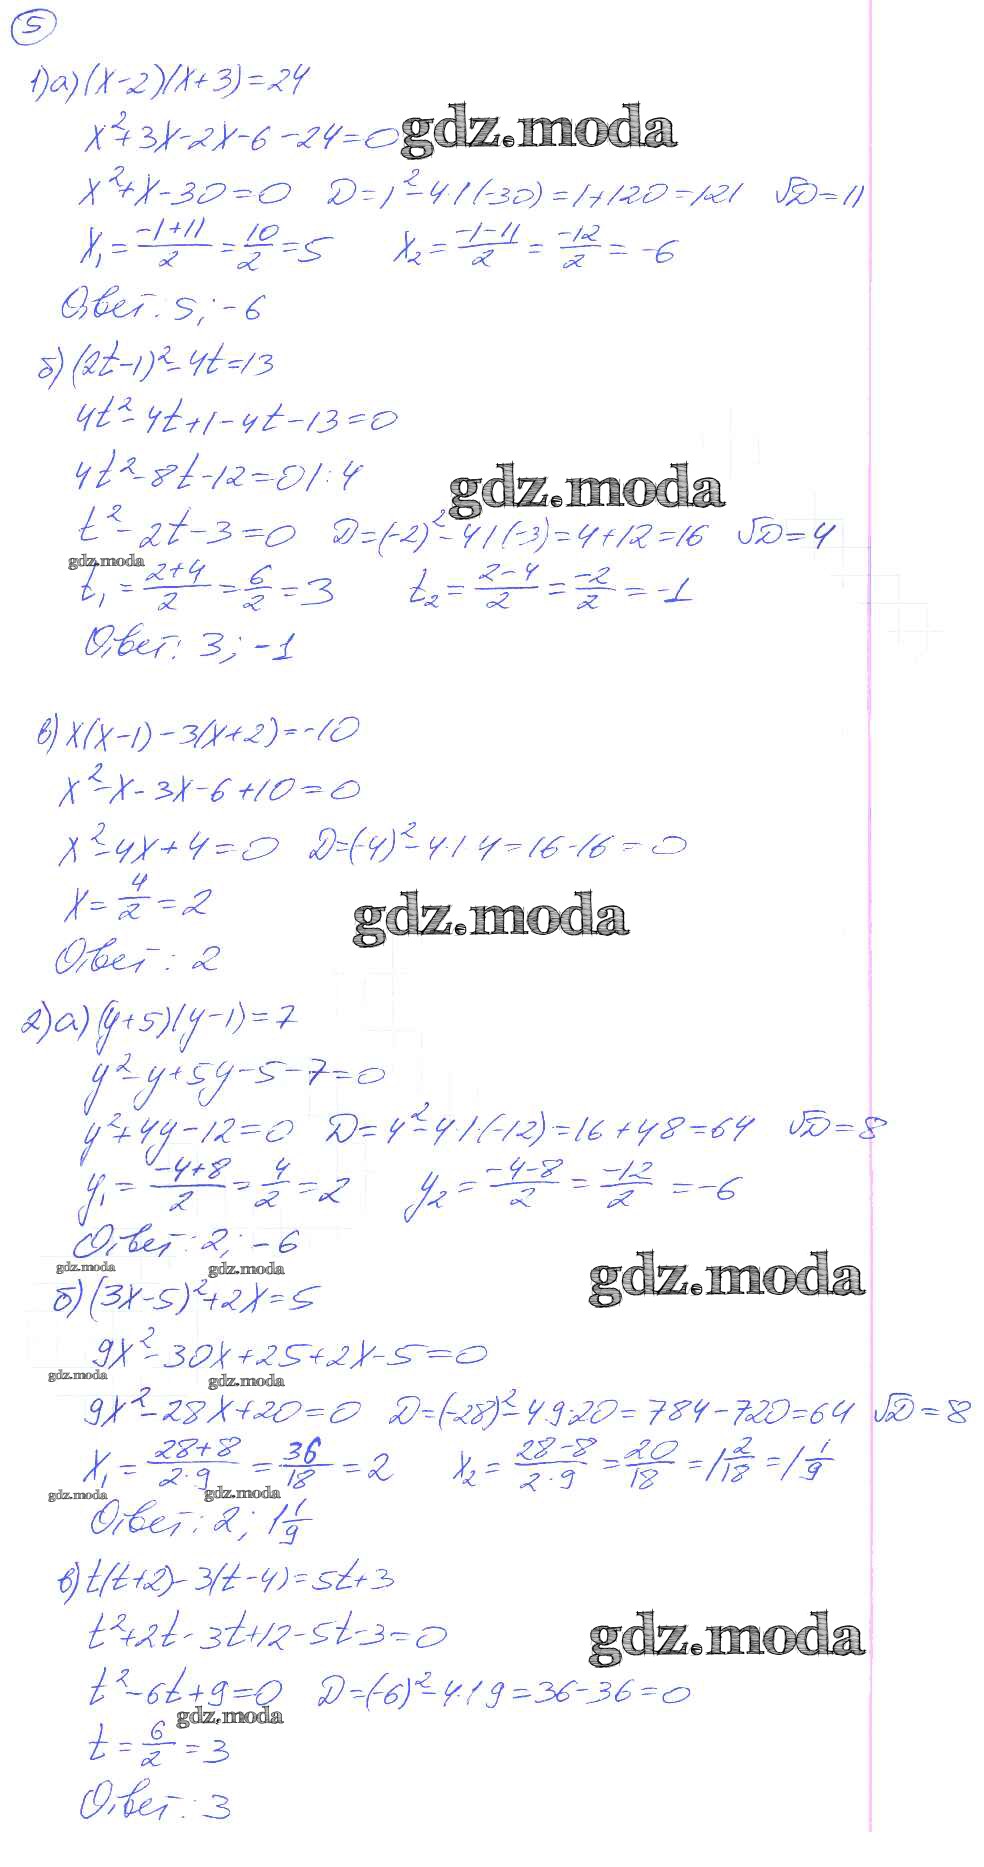 5
1) а) (x-2)(x+3)=24
x²+3x-2x-6-24=0 gdz.moda
x²+x-30=0 D=1²-4·1·(-30)=1+120=121 √D=11
x₁=(-1+11)/2=10/2=5 x₂=(-1-11)/2=-12/2=-6
Ответ: 5; -6
б) (2t-1)²-4t=13
4t²-4t+1-4t-13=0
4t²-8t-12=0 |:4 gdz.moda
t²-2t-3=0 D=(-2)²-4·1·(-3)=4+12=16 √D=4
gdz.moda
t₁=(2+4)/2=6/2=3 t₂=(2-4)/2=-2/2=-1
Ответ: 3; -1
в) x(x-1)-3(x+2)=-10
x²-x-3x-6+10=0
x²-4x+4=0 D=(-4)²-4·1·4=16-16=0
x=4/2=2 gdz.moda
Ответ: 2
2) а) (y+5)(y-1)=7
y²-y+5y-5-7=0
y²+4y-12=0 D=4²-4·1·(-12)=16+48=64 √D=8
y₁=(-4+8)/2=4/2=2 y₂=(-4-8)/2=-12/2=-6
Ответ: 2; -6
gdz.moda gdz.moda gdz.moda
б) (3x-5)²+2x=5
9x²-30x+25+2x-5=0
gdz.moda gdz.moda
9x²-28x+20=0 D=(-28)²-4·9·20=784-720=64 √D=8
x₁=(28+8)/(2·9)=36/18=2 x₂=(28-8)/(2·9)=20/18=1 2/18=1 1/9
gdz.moda gdz.moda
Ответ: 2; 1 1/9
в) t(t+2)-3(t-4)=5t+3
t²+2t-3t+12-5t-3=0 gdz.moda
t²-6t+9=0 D=(-6)²-4·1·9=36-36=0
gdz.moda
t=6/2=3
Ответ: 3